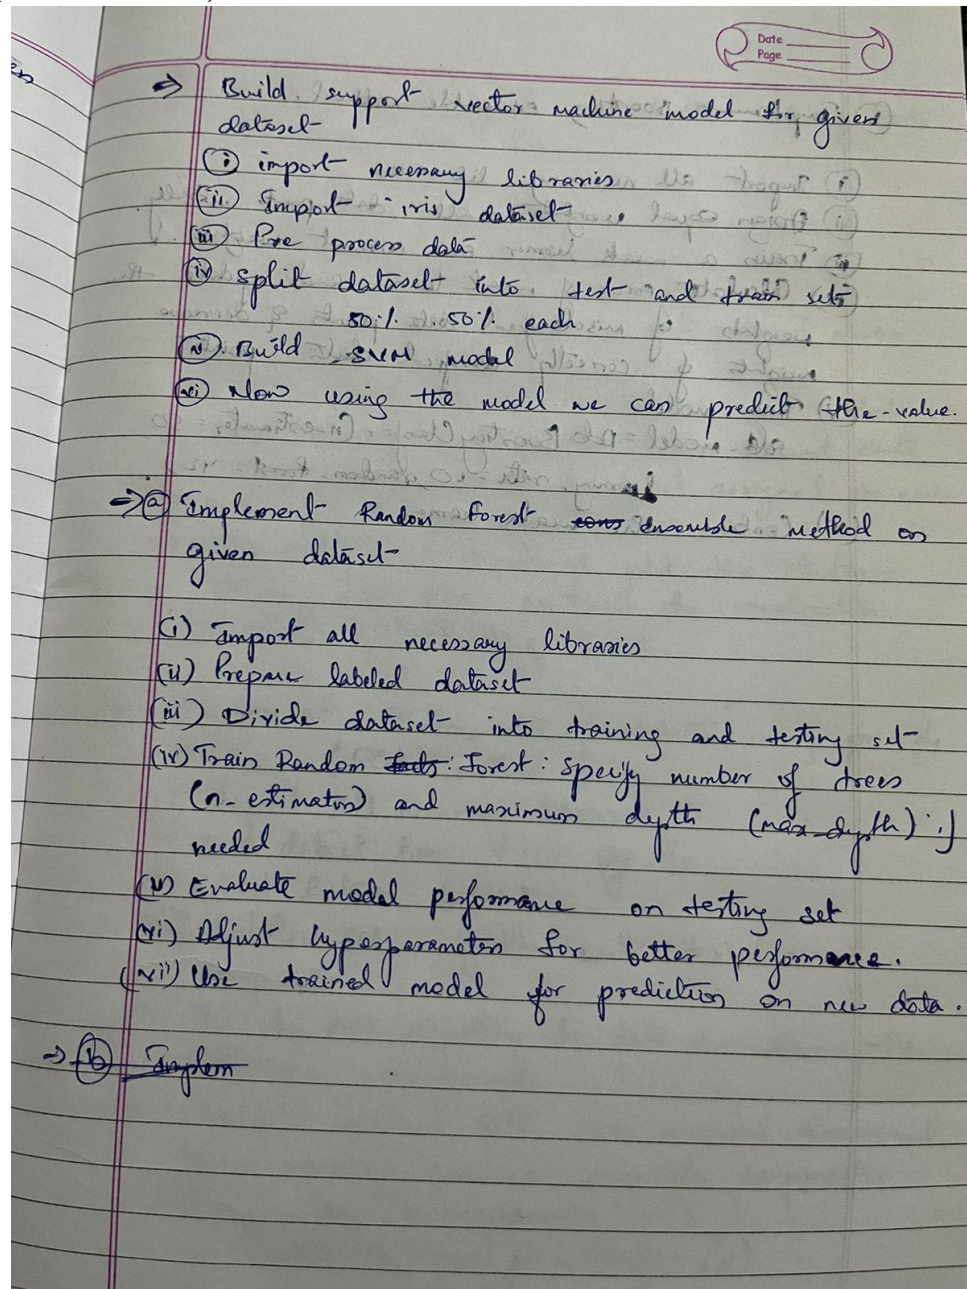 Date
Page
⇒ Build support vector machine model for given
dataset
(i) import necessary libraries
(ii) Import iris dataset
(iii) Pre process data
(iv) split dataset into test and train sets
50% 50% each
(v) Build SVM model
(vi) Now using the model we can predict the value.
⇒ (a) Implement Random Forest ensemble method on
given dataset
(i) Import all necessary libraries
(ii) Prepare labeled dataset
(iii) Divide dataset into training and testing set
(iv) Train Random Forest: Specify number of trees
(n-estimators) and maximum depth (max-depth) if
needed
(v) Evaluate model performance on testing set
(vi) Adjust hyperparameters for better performance.
(vii) Use trained model for prediction on new data.
⇒ (b) Implem